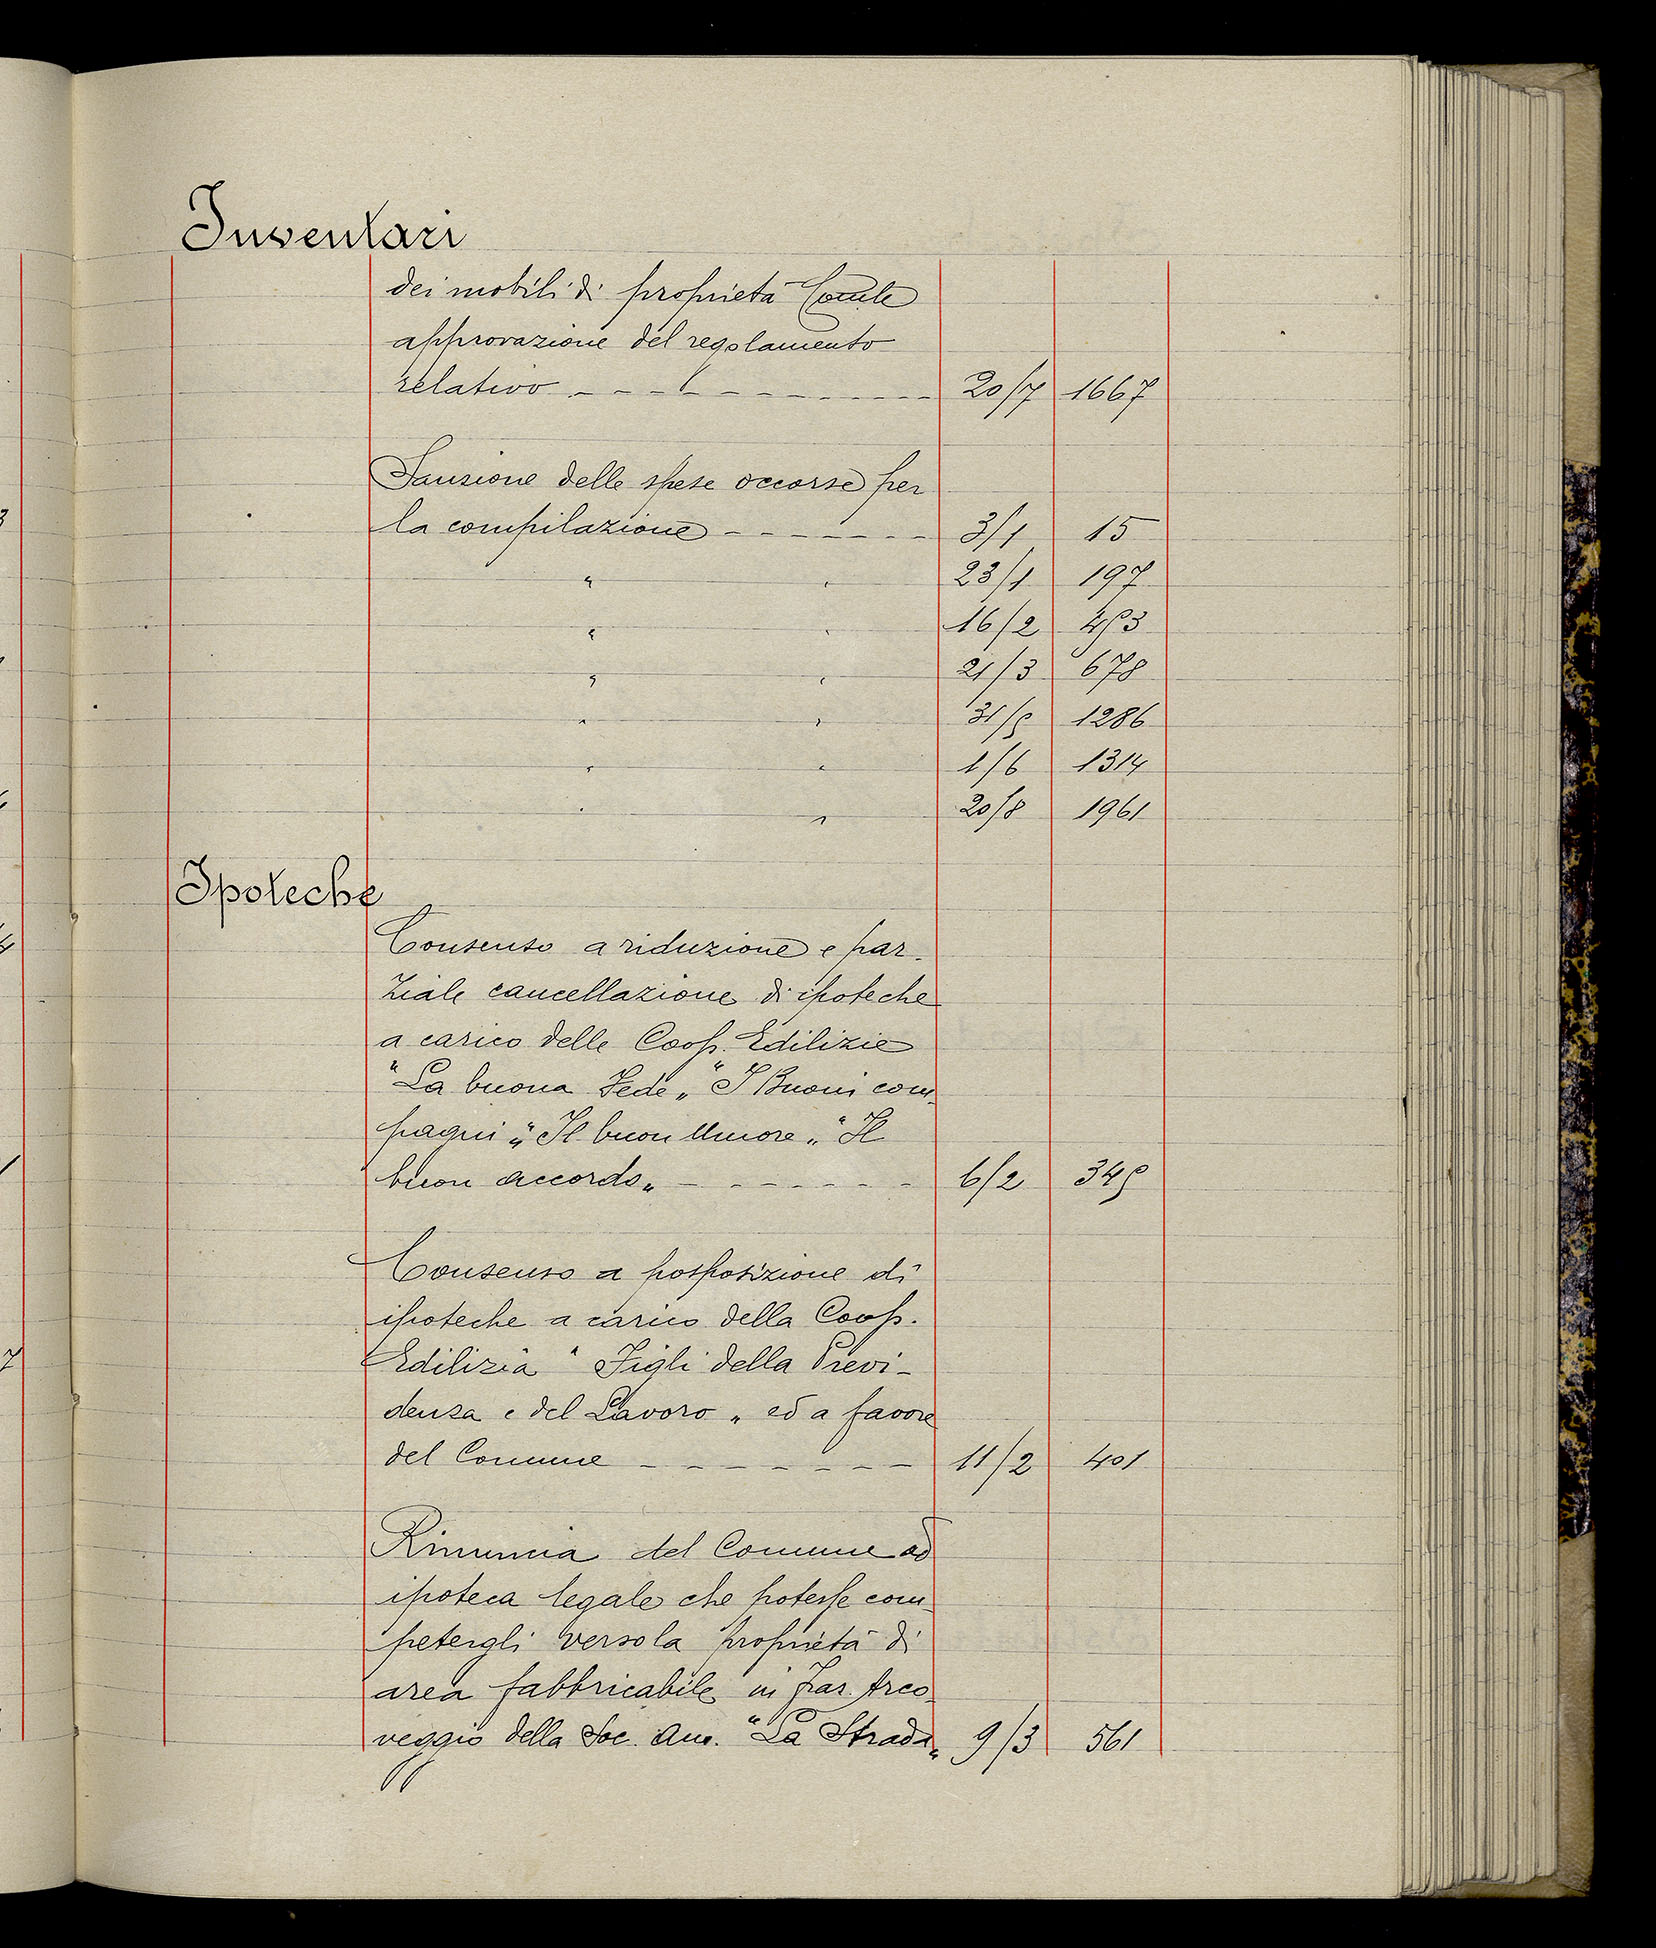 Inventari
dei mobili di proprietà Com.le
approvazione del regolamento
relativo - - - - - - - - - - - 20/7 1667
Sanzione delle spese occorse per
la compilazione - - - - - - 3/1 15
" " 23/1 197
" " 16/2 453
" " 21/3 678
" " 31/5 1286
" " 1/6 1314
" " 20/8 1961
Ipoteche
Consenso a riduzione e par-
ziale cancellazione di ipoteche
a carico delle Coop. Edilizie
"La buona Fede" "I Buoni com-
pagni" "Il buon Umore" "Il
buon accordo" - - - - - - - 6/2 345
Consenso a posposizione di
ipoteche a carico della Coop.
Edilizia "Figli della Previ-
denza e del Lavoro" ed a favore
del Comune - - - - - - - - 11/2 401
Rinuncia del Comune ad
ipoteca legale che potesse com-
petergli verso la proprietà di
area fabbricabile in fraz. Arco-
veggio della Soc. An. "La Strada" 9/3 561